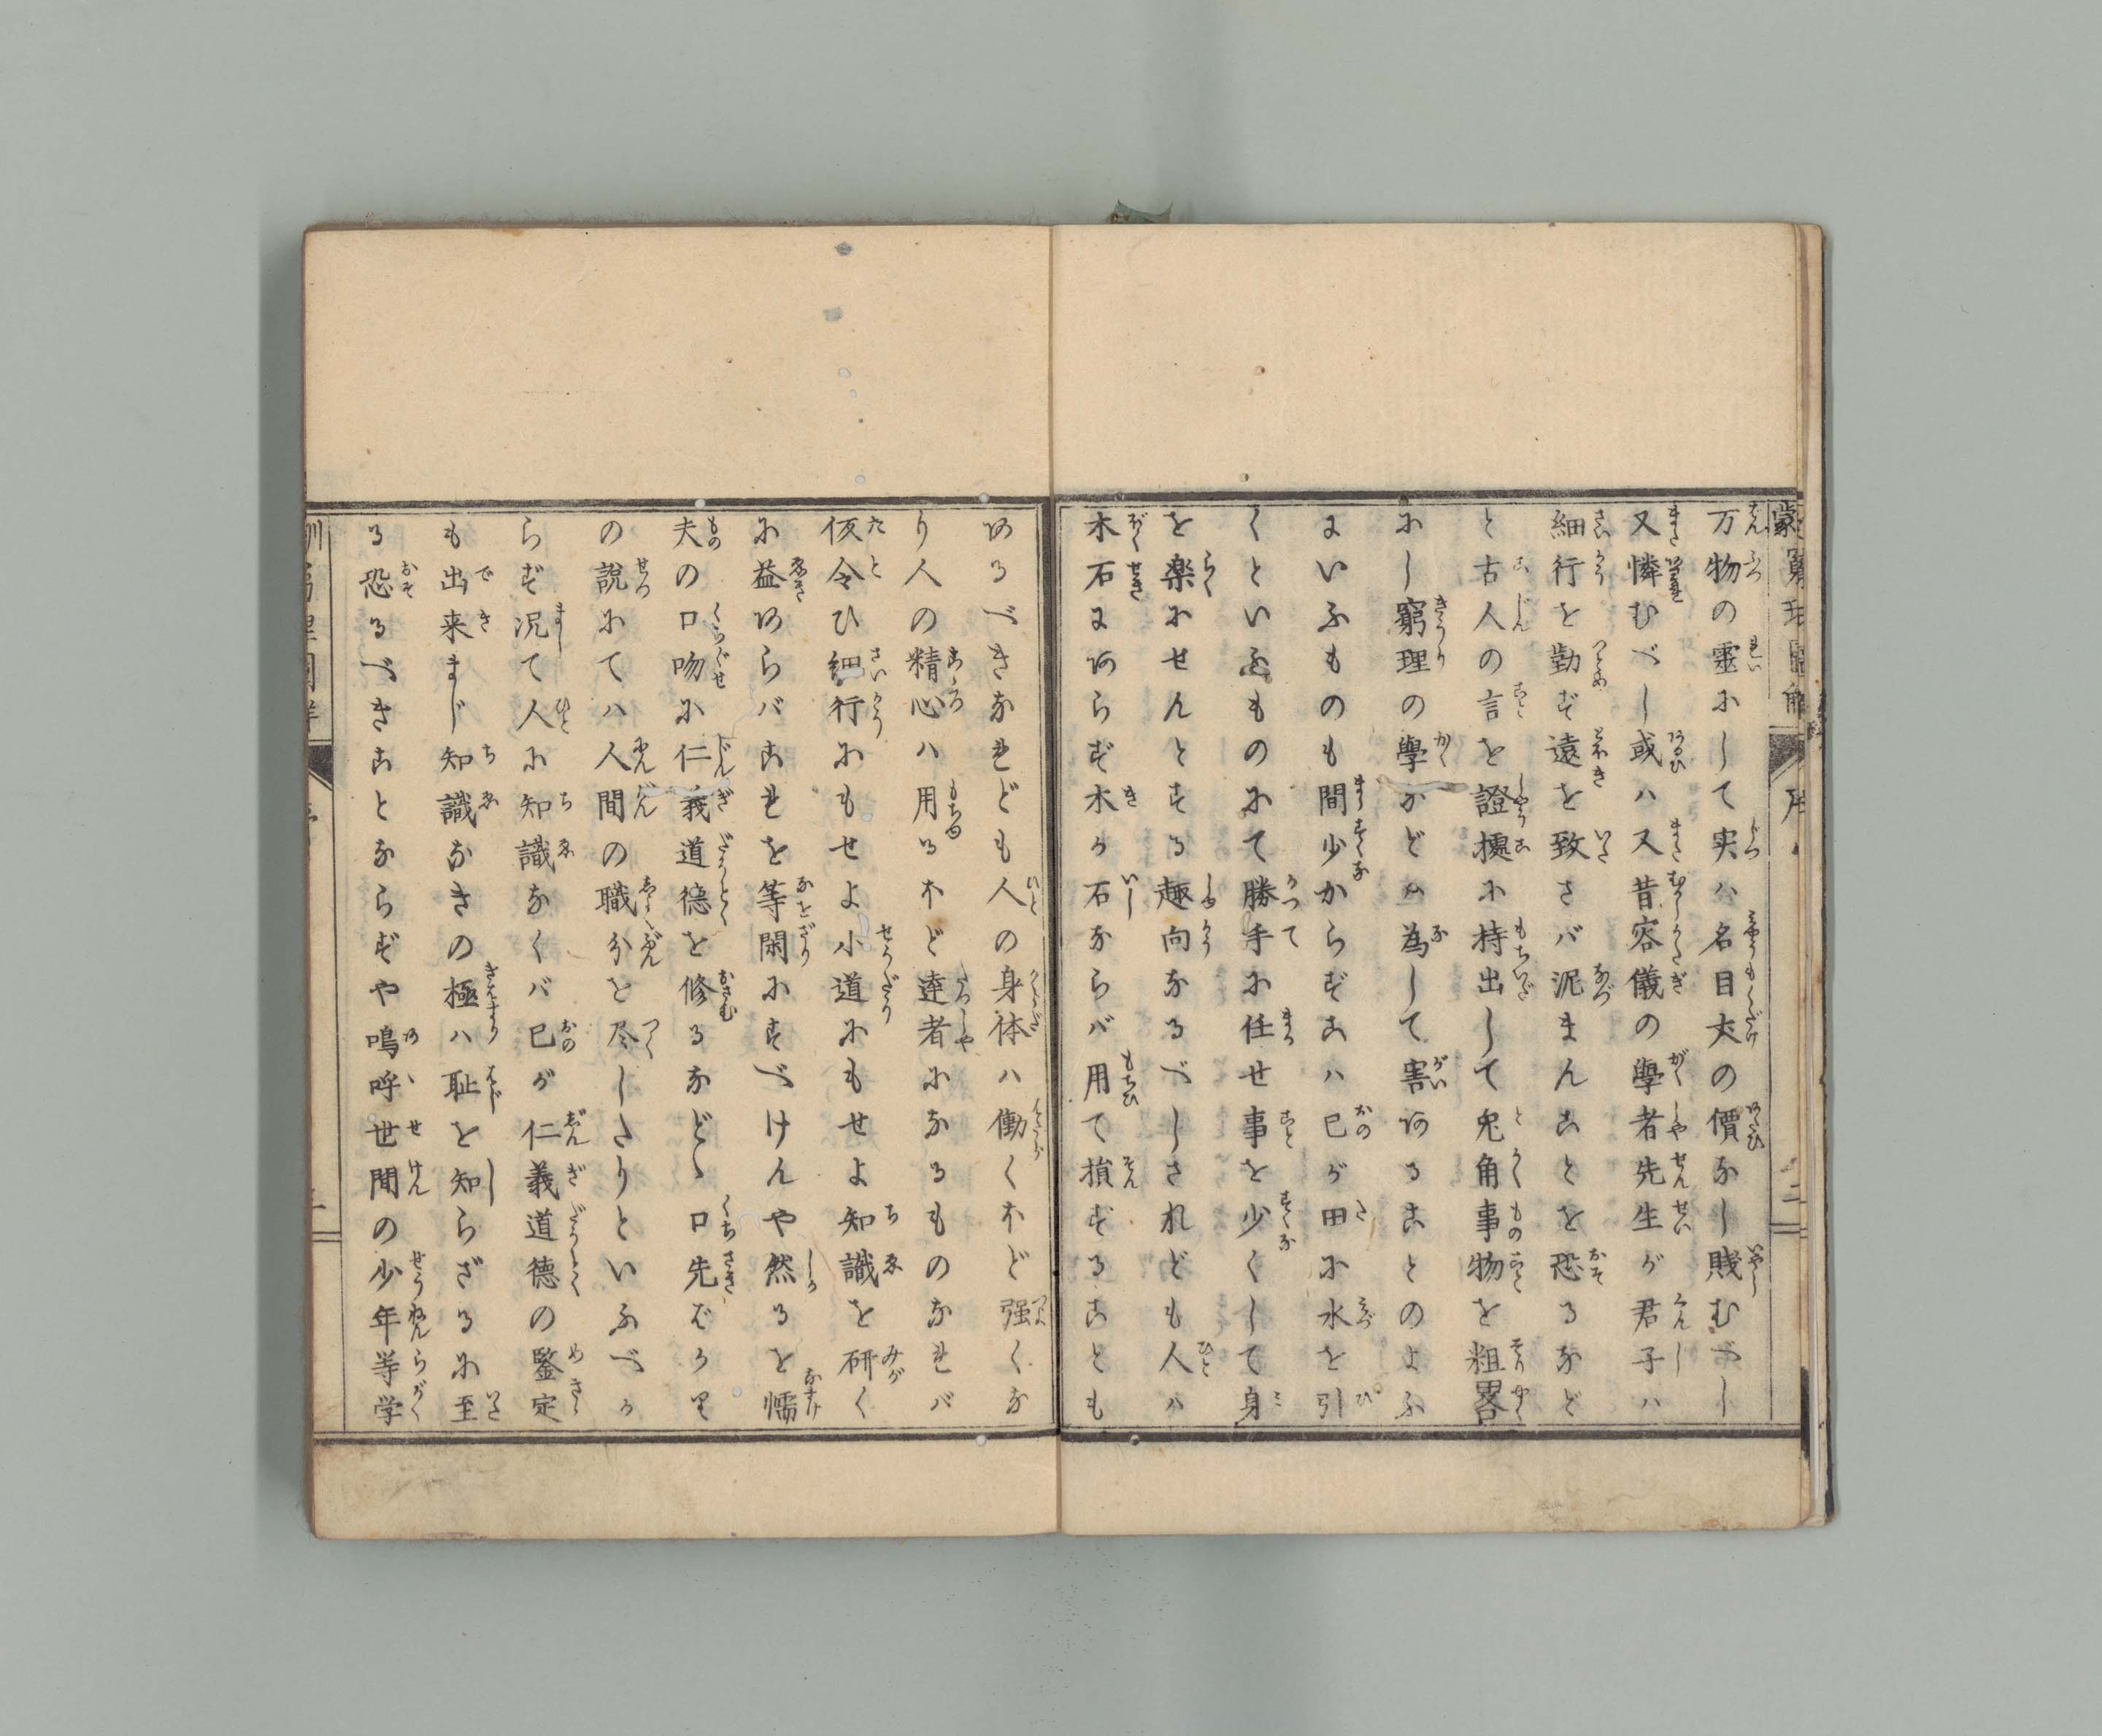 万物の霊にして実ハ名目丈の價なし賎むべし
又憐むべし或ハ又昔容儀の學者先生が君子ハ
細行を勤ず遠を致さバ泥まんことを恐るなど
と古人の言を證據に持出して兎角事物を粗畧
にし窮理の學などハ為して害あることのよふ
にいふものも間少からずこハ已が田に水を引
くといふものにて勝手に任せ事を少くして身
を楽にせんとする趣向なるべしされども人ハ
木石にあらず木か石ならバ用て損ずることも
あるべきなれども人の身体ハ働くほど強くな
り人の精心ハ用るほど達者になるものなれバ
仮令ひ細行にもせよ小道にもせよ知識を研く
に益あらバこれを等閑にすべけんや然るを懦
夫の口吻に仁義道徳を修るなどゝ口先ばかり
の説にてハ人間の職分を尽したりといふべか
らず况て人に知識なくバ已が仁義道徳の鑒定
も出来まじ知識なきの極ハ耻を知らざるに至
る恐るべきことならずや嗚呼世間の少年等学